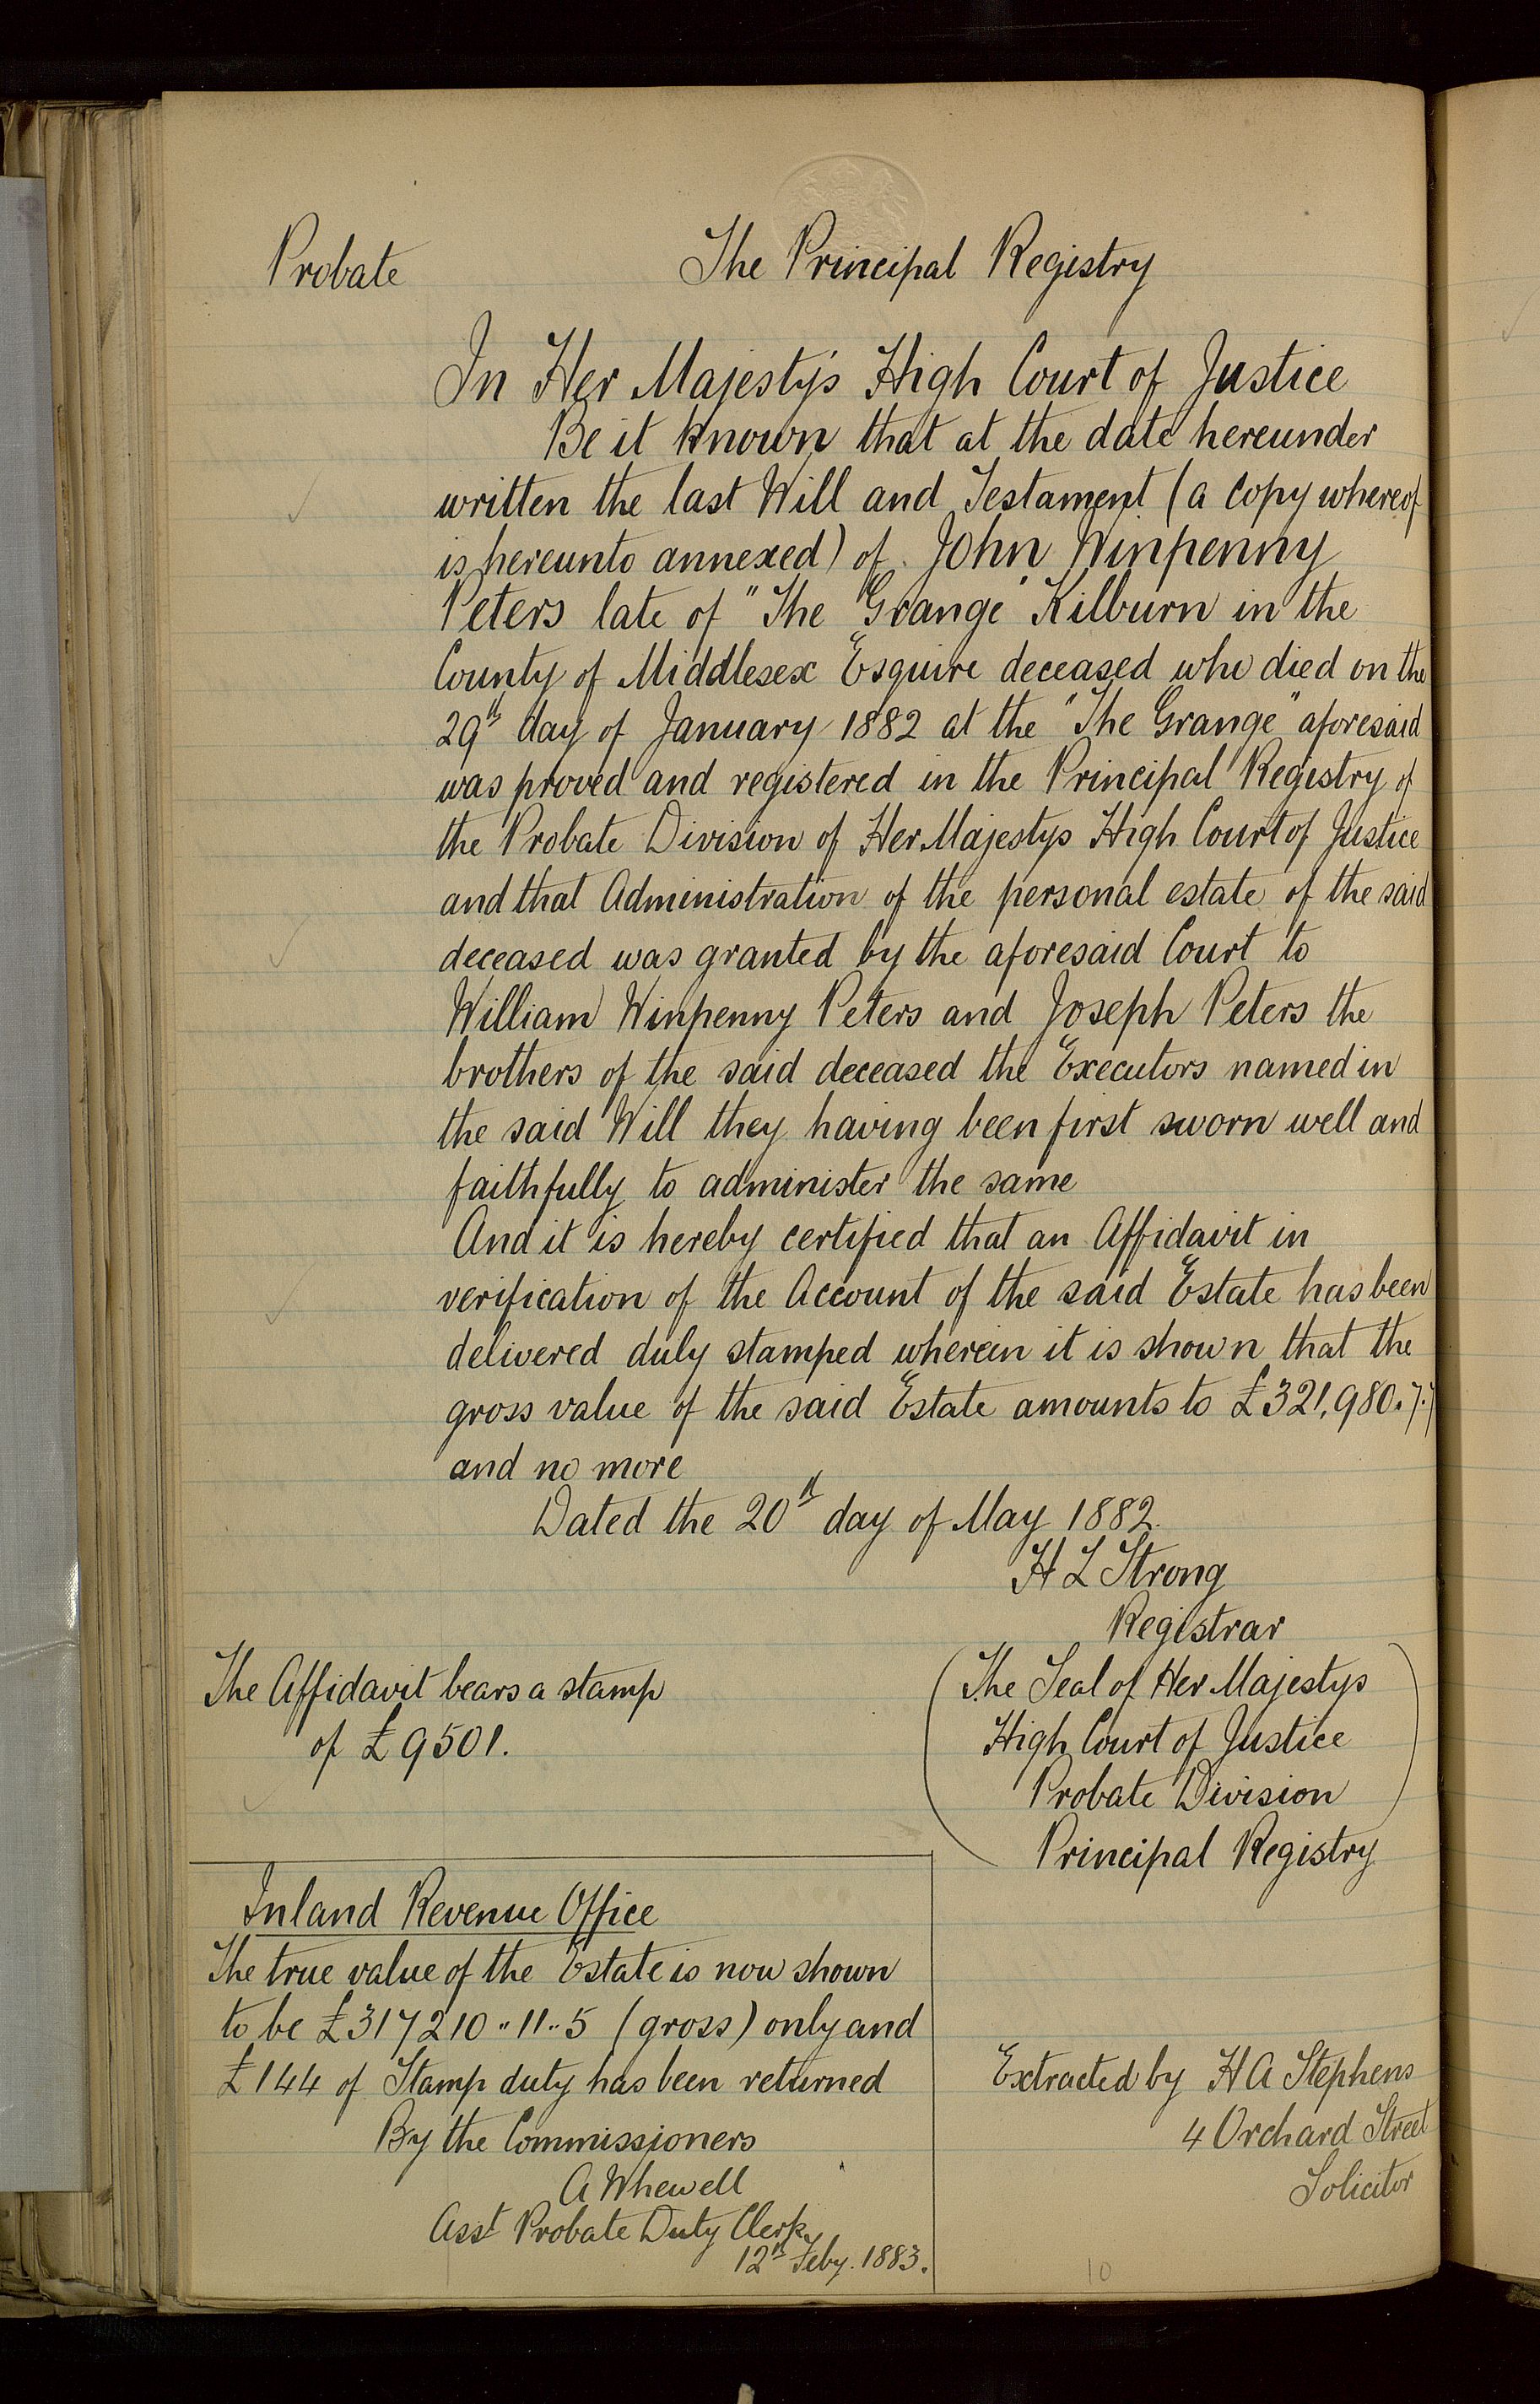 Probate
The Principal Registry
In Her Majesty's High Court of Justice
Be it known that at the date hereunder
written the last Will and Testament (a Copy whereof
is hereunto annexed) of John Winpenny
Peters late of "The Grange" Kilburn in the
County of Middlesex Esquire deceased who died on the
29th day of January 1882 at the "The Grange" aforesaid
was proved and registered in the Principal Registry of
the Probate Division of Her Majestys High Court of Justice
and that Administration of the personal estate of the said
deceased was granted by the aforesaid Court to
William Winpenny Peters and Joseph Peters the
brothers of the said deceased the Executors named in
the said Will they having been first sworn well and
faithfully to administer the same
And it is hereby certified that an Affidavit in
verification of the Account of the said Estate has been
delivered duly stamped wherein it is shown that the
gross value of the said Estate amounts to £321,980.7.7
and no more
Dated the 20th day of May 1882.
H L Strong
Registrar
The Affidavit bears a stamp
of £9501.
(The Seal of Her Majestys
High Court of Justice
Probate Division
Principal Registry)
Inland Revenue Office
The true value of the Estate is now shown
to be £317210..11..5 (gross) only and
£144 of Stamp duty has been returned
By the Commissioners
A Whewell
Asst Probate Duty Clerk
12th Feby. 1883.
Extracted by H A Stephens
4 Orchard Street
Solicitor
10